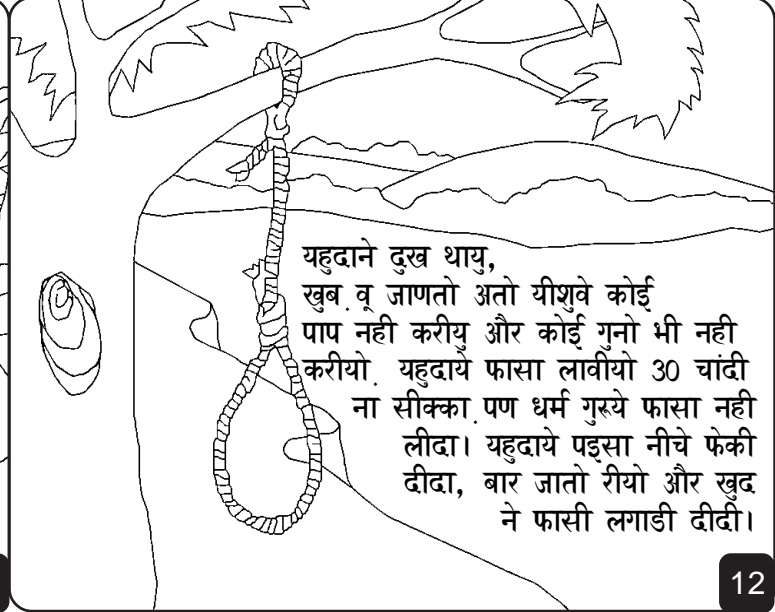 यहुदाने दुख थायु,
खुब.वू जाणतो अतो यीशुवे कोई
पाप नही करीयु और कोई गुनो भी नही
करीयो. यहुदाये फासा लावीयो 30 चांदी
ना सीक्का.पण धर्म गुरुये फासा नही
लीदा। यहुदाये पइसा नीचे फेकी
दीदा, बार जातो रीयो और खुद
ने फासी लगाडी दीदी।
12